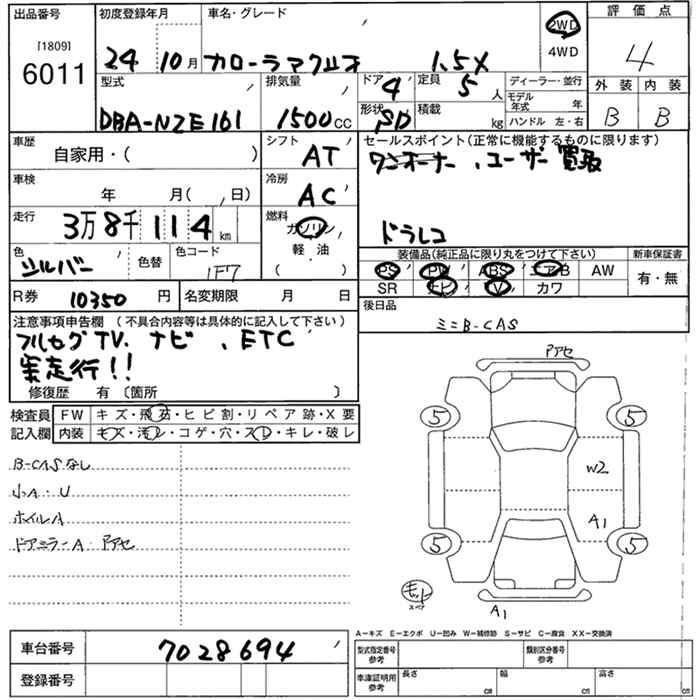 出品番号 初度登録年月 車名・グレード 2WD 評価点
[1809] 4WD 4
6011 24 10月 カローラアクシオ 1.5X
型式 排気量 ドア 4 定員 5人 ディーラー・並行 外装 内装
モデル年式 年
DBA-NZE161 1500cc 形状 SD 積載 kg ハンドル 左・右 B B
車歴 シフト セールスポイント(正常に機能するものに限ります)
自家用・( ) AT ワンオーナー、ユーザー買取
車検 冷房
年 月( 日) AC
走行 燃料 ドラレコ
3万8千114km ガソリン
色 色替 色コード 軽・油 装備品(純正品に限り丸をつけて下さい) 新車保証書
シルバー 1F7 ( ) PS PW ABS エアB AW 有・無
R券 10350円 名変期限 月 日 SR ナビ TV カワ
注意事項申告欄 (不具合内容等は具体的に記入して下さい) 後日品
フルセグTV、ナビ、ETC ミニB-CAS
実走行!!
修復歴 有〔箇所 〕
検査員 FW キズ・飛石・ヒビ割・リペア跡・X要
記入欄 内装 キズ・汚レ・コゲ・穴・スレ・キレ・破レ
B-CASなし
小A・U
ホイルA
ドアミラーA・アアセ
アアセ
5 5
W2
A1
5 5
スペア
A1
A−キズ E−エクボ U−凹み W−補修跡 S−サビ C−腐食 XX−交換済
車台番号 7028694 型式指定番号 参考 類別区分番号 参考
登録番号 車庫証明用 参考 長さ cm 幅 cm 高さ cm